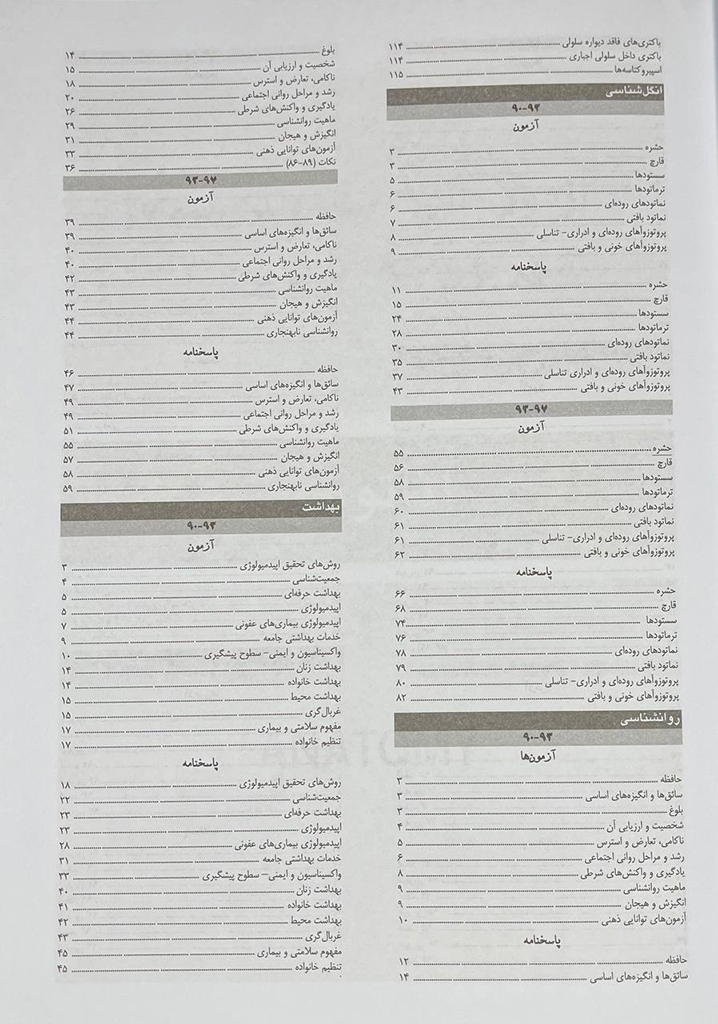 باکتری‌های فاقد دیواره سلولی ۱۱۴
باکتری داخل سلولی اجباری ۱۱۴
اسپیروکتاسه‌ها ۱۱۵
انگل‌شناسی
۹۰-۹۳
آزمون
حشره ۳
قارچ ۳
سستودها ۵
ترماتودها ۶
نماتودهای روده‌ای ۶
نماتود بافتی ۷
پروتوزوآهای روده‌ای و ادراری- تناسلی ۸
پروتوزوآهای خونی و بافتی ۹
پاسخنامه
حشره ۱۱
قارچ ۱۵
سستودها ۲۴
ترماتودها ۲۸
نماتودهای روده‌ای ۳۰
نماتود بافتی ۳۵
پروتوزوآهای روده‌ای و ادراری تناسلی ۳۷
پروتوزوآهای خونی و بافتی ۴۳
۹۳-۹۷
آزمون
حشره ۵۵
قارچ ۵۶
سستودها ۵۸
ترماتودها ۵۹
نماتودهای روده‌ای ۶۰
نماتود بافتی ۶۱
پروتوزوآهای روده‌ای و ادراری- تناسلی ۶۱
پروتوزوآهای خونی و بافتی ۶۲
پاسخنامه
حشره ۶۶
قارچ ۶۸
سستودها ۷۴
ترماتودها ۷۶
نماتودهای روده‌ای ۷۸
نماتود بافتی ۷۹
پروتوزوآهای روده‌ای و ادراری- تناسلی ۸۰
پروتوزوآهای خونی و بافتی ۸۲
روانشناسی
۹۰-۹۳
آزمون‌ها
حافظه ۳
سائق‌ها و انگیزه‌های اساسی ۳
بلوغ ۳
شخصیت و ارزیابی آن ۴
ناکامی، تعارض و استرس ۵
رشد و مراحل روانی اجتماعی ۶
یادگیری و واکنش‌های شرطی ۸
ماهیت روانشناسی ۹
انگیزش و هیجان ۹
آزمون‌های توانایی ذهنی ۱۰
پاسخنامه
حافظه ۱۲
سائق‌ها و انگیزه‌های اساسی ۱۴
بلوغ ۱۴
شخصیت و ارزیابی آن ۱۵
ناکامی، تعارض و استرس ۱۸
رشد و مراحل روانی اجتماعی ۲۰
یادگیری و واکنش‌های شرطی ۲۶
ماهیت روانشناسی ۲۹
انگیزش و هیجان ۳۱
آزمون‌های توانایی ذهنی ۳۳
نکات (۸۹-۸۶) ۳۶
۹۳-۹۷
آزمون
حافظه ۳۹
سائق‌ها و انگیزه‌های اساسی ۳۹
ناکامی، تعارض و استرس ۴۰
رشد و مراحل روانی اجتماعی ۴۰
یادگیری و واکنش‌های شرطی ۴۲
ماهیت روانشناسی ۴۳
انگیزش و هیجان ۴۳
آزمون‌های توانایی ذهنی ۴۴
روانشناسی نابهنجاری ۴۴
پاسخنامه
حافظه ۴۶
سائق‌ها و انگیزه‌های اساسی ۴۷
ناکامی، تعارض و استرس ۴۹
رشد و مراحل روانی اجتماعی ۴۹
یادگیری و واکنش‌های شرطی ۵۱
ماهیت روانشناسی ۵۵
انگیزش و هیجان ۵۷
آزمون‌های توانایی ذهنی ۵۸
روانشناسی نابهنجاری ۵۹
بهداشت
۹۰-۹۳
آزمون
روش‌های تحقیق اپیدمیولوژی ۳
جمعیت‌شناسی ۴
بهداشت حرفه‌ای ۵
اپیدمیولوژی ۵
اپیدمیولوژی بیماری‌های عفونی ۷
خدمات بهداشتی جامعه ۹
واکسیناسیون و ایمنی- سطوح پیشگیری ۱۰
بهداشت زنان ۱۴
بهداشت خانواده ۱۴
بهداشت محیط ۱۵
غربال‌گری ۱۵
مفهوم سلامتی و بیماری ۱۷
تنظیم خانواده ۱۷
پاسخنامه
روش‌های تحقیق اپیدمیولوژی ۱۸
جمعیت‌شناسی ۲۲
بهداشت حرفه‌ای ۲۳
اپیدمیولوژی ۲۳
اپیدمیولوژی بیماری‌های عفونی ۲۸
خدمات بهداشتی جامعه ۳۱
واکسیناسیون و ایمنی- سطوح پیشگیری ۳۳
بهداشت زنان ۴۰
بهداشت خانواده ۴۱
بهداشت محیط ۴۲
غربال‌گری ۴۳
مفهوم سلامتی و بیماری ۴۵
تنظیم خانواده ۴۵